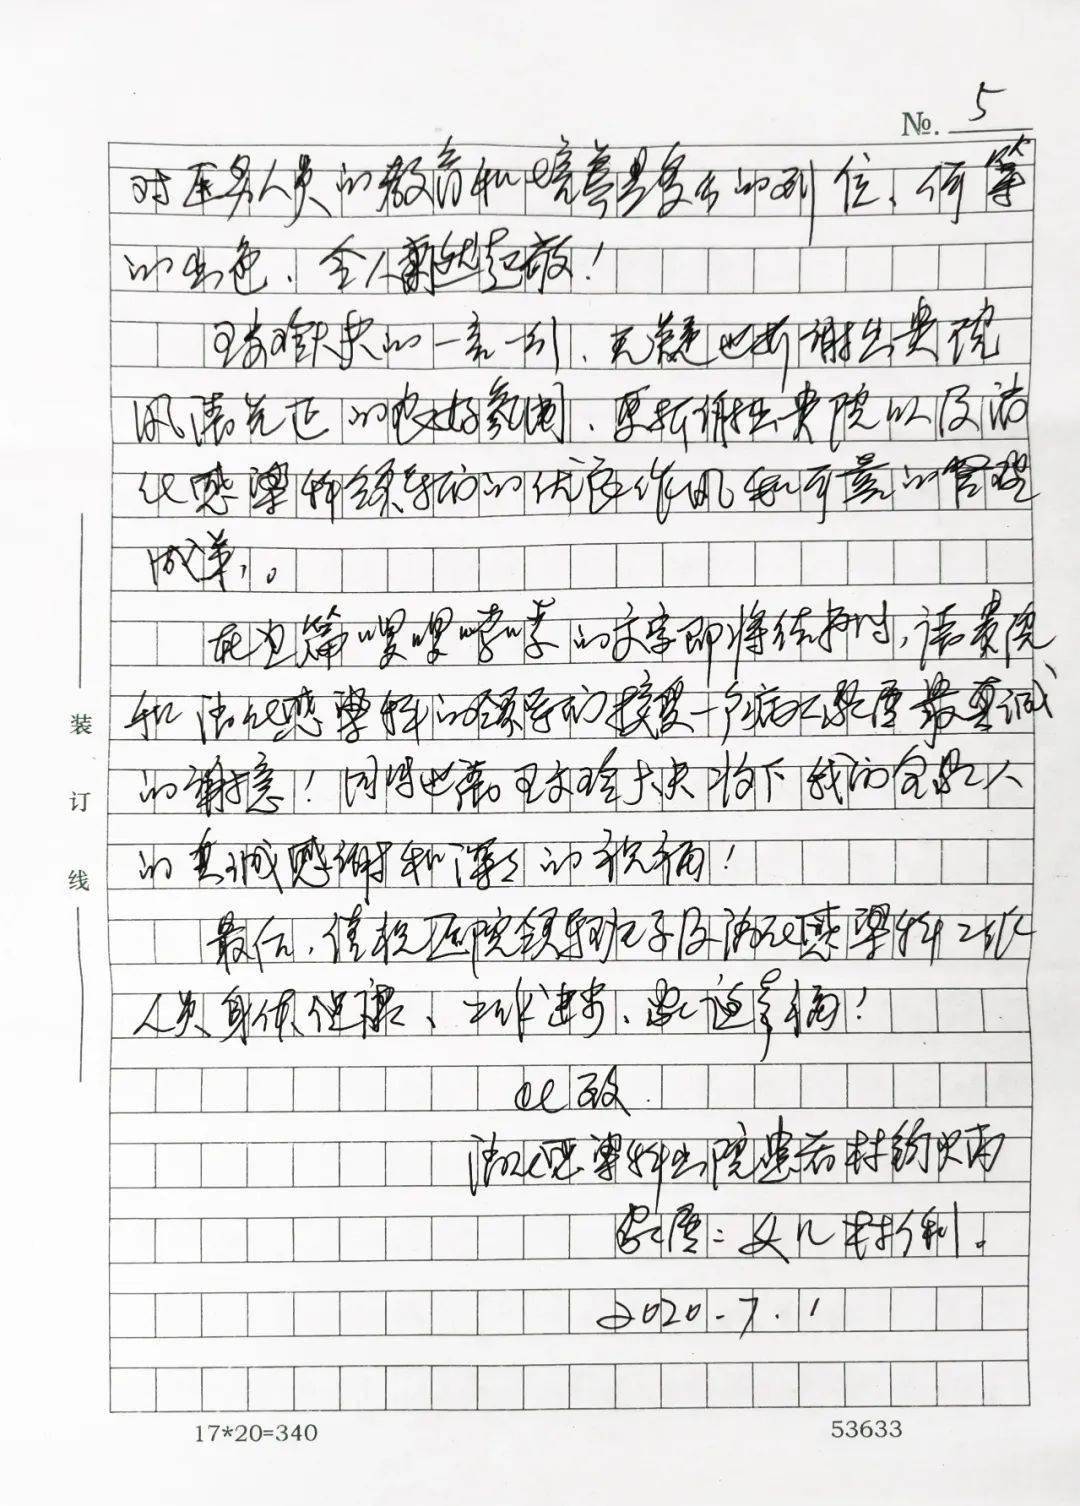 №. 5
对医务人员的教育和培养是多么的到位、何等
的出色、令人肃然起敬！
大夫的一言一行、无疑也折谢出贵院
风清气正的良好氛围、更折谢出贵院以及消
化感染科领导们的优良作风和可靠的管理
成果。
在这篇啰啰嗦嗦的文字即将结束时，请贵院
和消化感染科的领导们接受一户病人家属最真诚
的谢意！同时也请王文玲大夫收下我们全家人
的真诚感谢和深深的祝福！
最后，谨祝医院领导班子及消化感染科工作
人员身体健康、工作进步、家庭幸福！
此致
消化感染科出院患者
家属：女儿
2020.7.1
装
订
线
17*20=340
53633